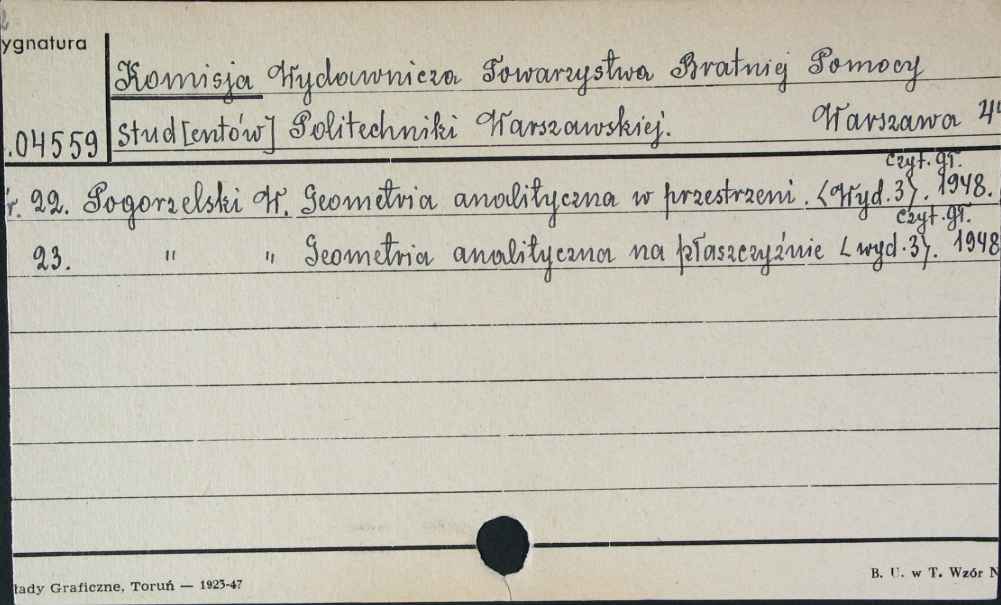 ygnatura
Komisja Wydawnicza Towarzystwa Bratniej Pomocy
.04559 Stud[entów] Politechniki Warszawskiej. Warszawa 4
czyt. gł.
r. 22. Pogorzelski W. Geometria analityczna w przestrzeni. <Wyd.3>. 1948.
czyt. gł.
23. " " Geometria analityczna na płaszczyźnie <wyd.3>. 1948
łady Graficzne, Toruń — 1923-47
B. U. w T. Wzór N